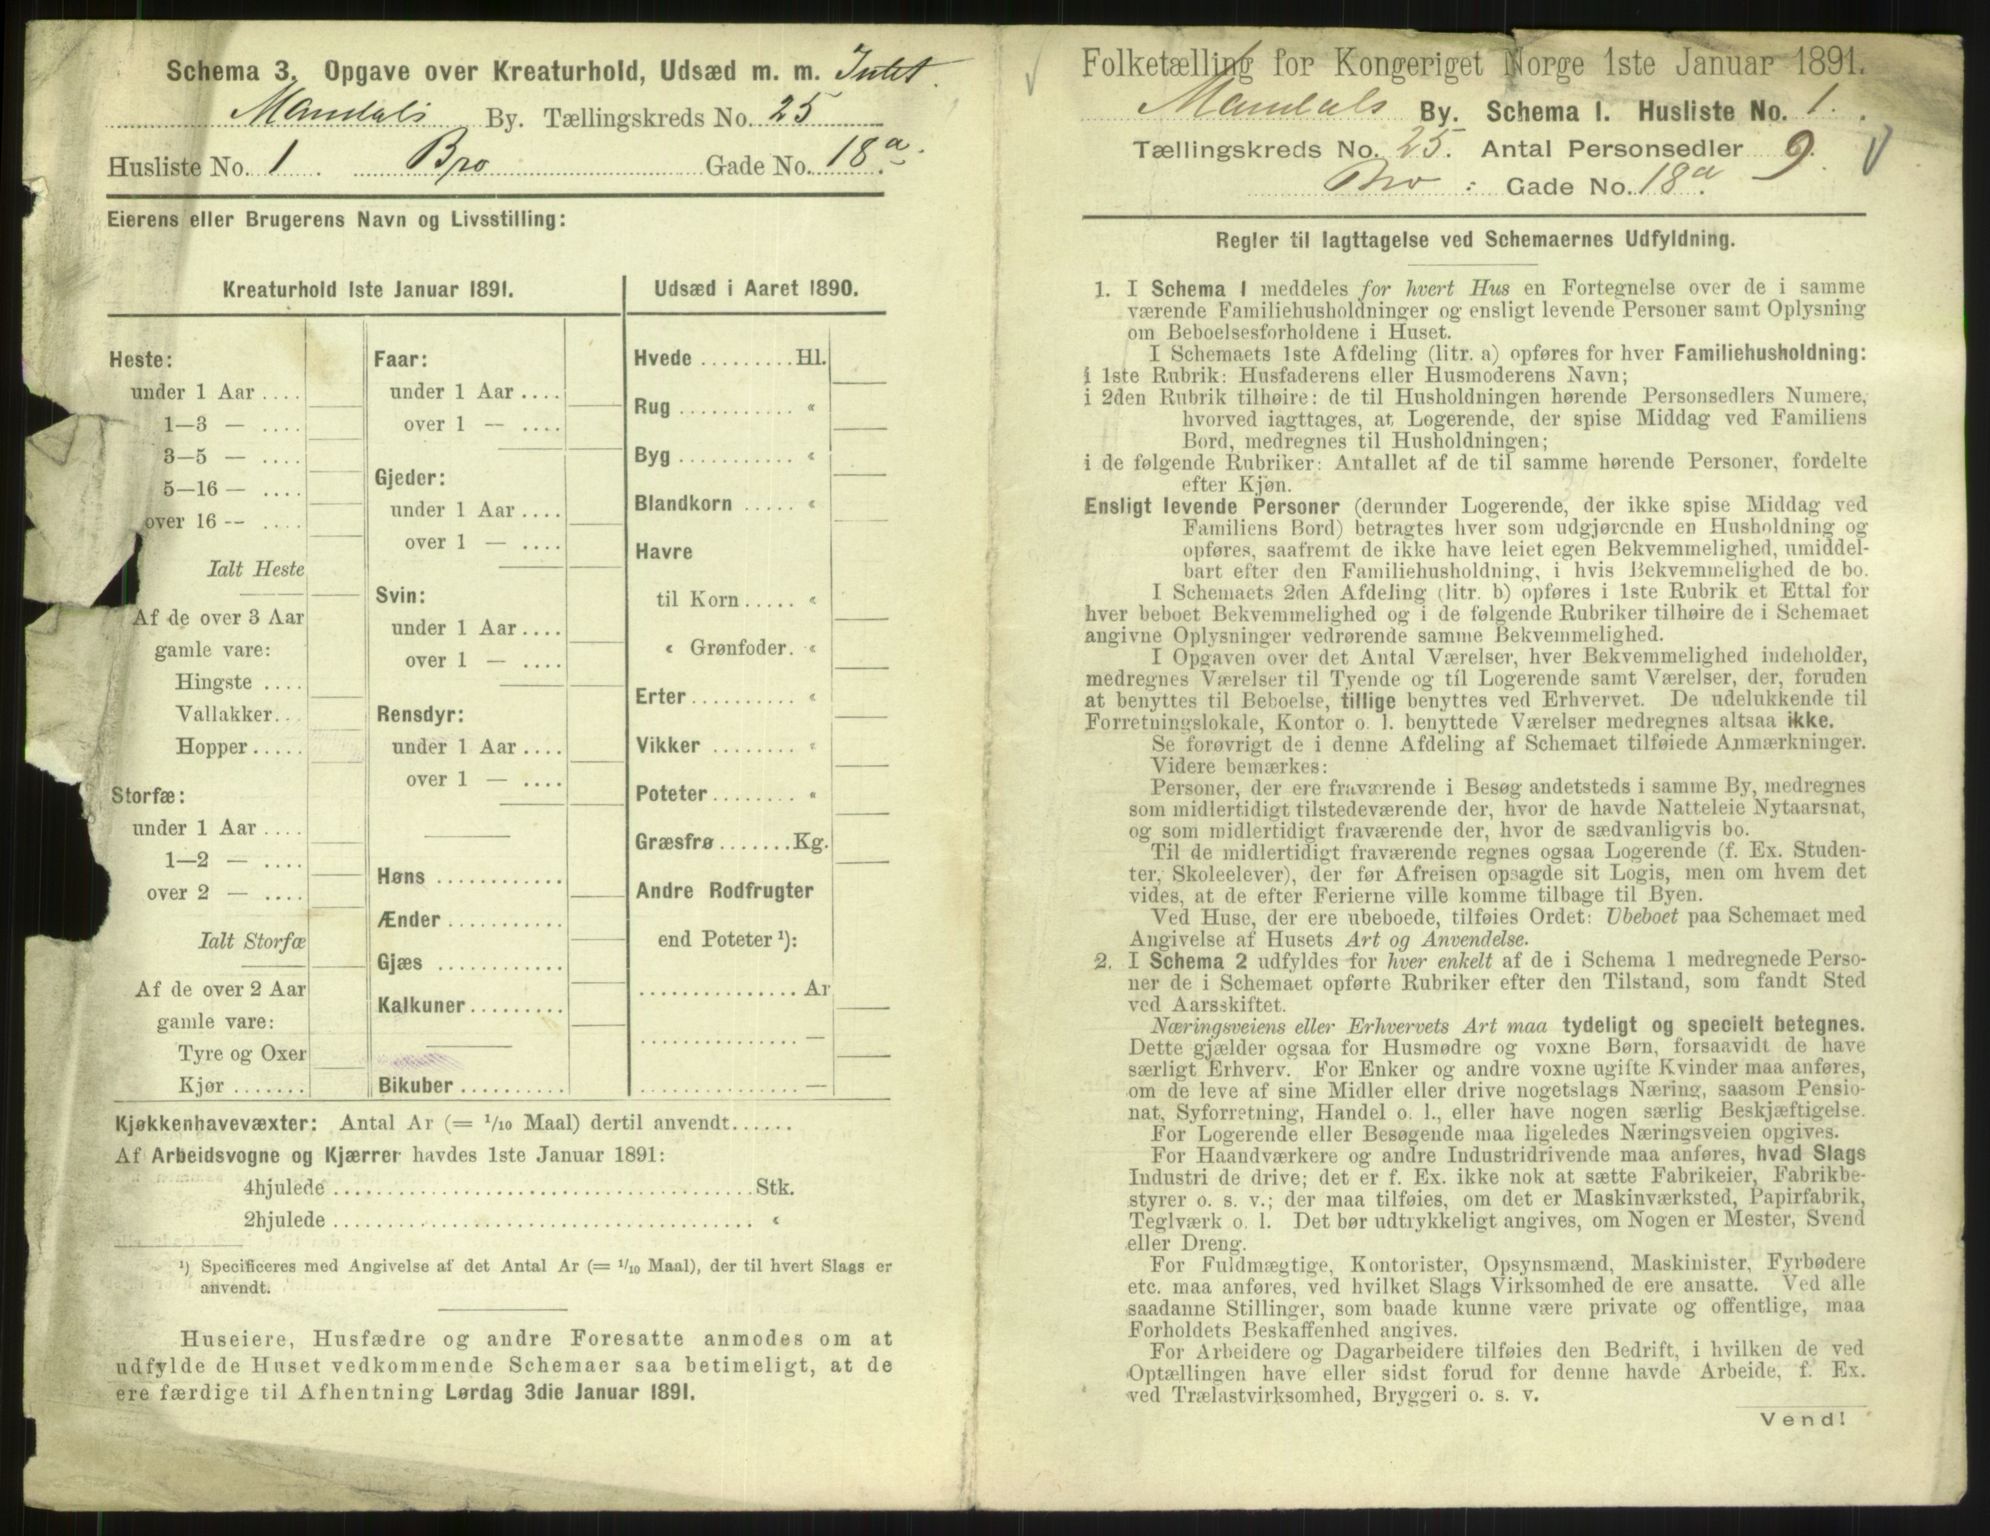 Schema 3. Opgave over Kreaturhold, Udsæd m. m. Intet.
Mandals By. Tællingskreds No. 25
Husliste No. 1. Bro Gade No. 18a.
Eierens eller Brugerens Navn og Livsstilling:
Kreaturhold 1ste Januar 1891.
Heste:
under 1 Aar ....
1—3 — ....
3—5 — ....
5—16 — ....
over 16 — ....
Ialt Heste
Af de over 3 Aar
gamle vare:
Hingste ....
Vallakker...
Hopper.....
Storfæ:
under 1 Aar ....
1—2 — ....
over 2 — ....
Ialt Storfæ
Af de over 2 Aar
gamle vare:
Tyre og Oxer
Kjør .......
Faar:
under 1 Aar ....
over 1 — ....
Gjeder:
under 1 Aar ....
over 1 — ....
Svin:
under 1 Aar ....
over 1 — ....
Rensdyr:
under 1 Aar ....
over 1 — ....
Høns ............
Ænder ...........
Gjæs ............
Kalkuner .........
Bikuber ..........
Udsæd i Aaret 1890.
Hvede .........Hl.
Rug ........... “
Byg ........... “
Blandkorn ..... “
Havre
til Korn..... “
“ Grønfoder. “
Erter .......... “
Vikker ......... “
Poteter ........ “
Græsfrø .......Kg.
Andre Rodfrugter
end Poteter ¹):
............... Ar
............... —
............... —
Kjøkkenhavevæxter: Antal Ar (= 1/10 Maal) dertil anvendt......
Af Arbeidsvogne og Kjærrer havdes 1ste Januar 1891:
4hjulede ........................................Stk.
2hjulede ........................................ “
¹) Specificeres med Angivelse af det Antal Ar (= 1/10 Maal), der til hvert Slags er
anvendt.
Huseiere, Husfædre og andre Foresatte anmodes om at
udfylde de Huset vedkommende Schemaer saa betimeligt, at de
ere færdige til Afhentning Lørdag 3die Januar 1891.
Folketælling for Kongeriget Norge 1ste Januar 1891.
Mandals By. Schema I. Husliste No. 1.
Tællingskreds No. 25. Antal Personsedler 9.
Bro : Gade No. 18a.
Regler til Iagttagelse ved Schemaernes Udfyldning.
1. I Schema 1 meddeles for hvert Hus en Fortegnelse over de i samme
værende Familiehusholdninger og ensligt levende Personer samt Oplysning
om Beboelsesforholdene i Huset.
I Schemaets 1ste Afdeling (litr. a) opføres for hver Familiehusholdning:
i 1ste Rubrik: Husfaderens eller Husmoderens Navn;
i 2den Rubrik tilhøire: de til Husholdningen hørende Personsedlers Numere,
hvorved iagttages, at Logerende, der spise Middag ved Familiens
Bord, medregnes til Husholdningen;
i de følgende Rubriker: Antallet af de til samme hørende Personer, fordelte
efter Kjøn.
Ensligt levende Personer (derunder Logerende, der ikke spise Middag ved
Familiens Bord) betragtes hver som udgjørende en Husholdning og
opføres, saafremt de ikke have leiet egen Bekvemmelighed, umiddel-
bart efter den Familiehusholdning, i hvis Bekvemmelighed de bo.
I Schemaets 2den Afdeling (litr. b) opføres i 1ste Rubrik et Ettal for
hver beboet Bekvemmelighed og i de følgende Rubriker tilhøire de i Schemaet
angivne Oplysninger vedrørende samme Bekvemmelighed.
I Opgaven over det Antal Værelser, hver Bekvemmelighed indeholder,
medregnes Værelser til Tyende og til Logerende samt Værelser, der, foruden
at benyttes til Beboelse, tillige benyttes ved Erhvervet. De udelukkende til
Forretningslokale, Kontor o. l. benyttede Værelser medregnes altsaa ikke.
Se forøvrigt de i denne Afdeling af Schemaet tilføiede Anmærkninger.
Videre bemærkes:
Personer, der ere fraværende i Besøg andetsteds i samme By, medregnes
som midlertidigt tilstedeværende der, hvor de havde Natteleie Nytaarsnat,
og som midlertidigt fraværende der, hvor de sædvanligvis bo.
Til de midlertidigt fraværende regnes ogsaa Logerende (f. Ex. Studen-
ter, Skoleelever), der før Afreisen opsagde sit Logis, men om hvem det
vides, at de efter Ferierne ville komme tilbage til Byen.
Ved Huse, der ere ubeboede, tilføies Ordet: Ubeboet paa Schemaet med
Angivelse af Husets Art og Anvendelse.
2. I Schema 2 udfyldes for hver enkelt af de i Schema 1 medregnede Perso-
ner de i Schemaet opførte Rubriker efter den Tilstand, som fandt Sted
ved Aarsskiftet.
Næringsveiens eller Erhvervets Art maa tydeligt og specielt betegnes.
Dette gjælder ogsaa for Husmødre og voxne Børn, forsaavidt de have
særligt Erhverv. For Enker og andre voxne ugifte Kvinder maa anføres,
om de leve af sine Midler eller drive nogetslags Næring, saasom Pensio-
nat, Syforretning, Handel o. l., eller have nogen særlig Beskjæftigelse.
For Logerende eller Besøgende maa ligeledes Næringsveien opgives.
For Haandværkere og andre Industridrivende maa anføres, hvad Slags
Industri de drive; det er f. Ex. ikke nok at sætte Fabrikeier, Fabrikbe-
styrer o. s. v.; der maa tilføies, om det er Maskinværksted, Papirfabrik,
Teglværk o. l. Det bør udtrykkeligt angives, om Nogen er Mester, Svend
eller Dreng.
For Fuldmægtige, Kontorister, Opsynsmænd, Maskinister, Fyrbødere
etc. maa anføres, ved hvilket Slags Virksomhed de ere ansatte. Ved alle
saadanne Stillinger, som baade kunne være private og offentlige, maa
Forholdets Beskaffenhed angives.
For Arbeidere og Dagarbeidere tilføies den Bedrift, i hvilken de ved
Optællingen have eller sidst forud for denne havde Arbeide, f. Ex.
ved Trælastvirksomhed, Bryggeri o. s. v.
Vend!